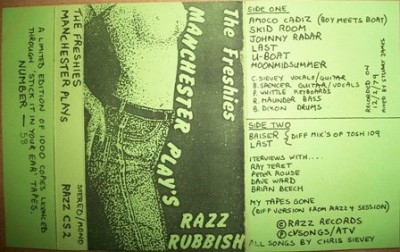 A LIMITED EDITION OF
1000 COPIES LICENCED
THROUGH 'STICK IT IN YOUR EAR' TAPES.
NUMBER — 58
THE FRESHIES
MANCHESTER PLAYS
STEREO/MONO
RAZZ CS2
The Freshies
MANCHESTER PLAY'S
RAZZ
RUBBISH
SIDE ONE
AMOCO CADIZ (BOY MEETS BOAT)
SKID ROOM
JOHNNY RADAR
LAST
U-BOAT
MOONMIDSUMMER
C. SIEVEY VOCALS/GUITAR
B. SPENCER GUITAR/VOCALS
R. WHITTLE KEYBOARDS
R. MAUNDER BASS
B. DIXON DRUMS
RECORDED ON
12/5/79
MIXED BY STUART JAMES
SIDE TWO
BAISER } DIFF MIX'S OF TOSH 109
LAST
INTERVIEWS WITH...
RAY TERET
PETER ROUSE
DAVE WARD
BRIAN BEECH
MY TAPES GONE
(DIFF VERSION FROM RAZZ 4 SESSION)
Ⓟ RAZZ RECORDS
© CVSONGS/ATV
ALL SONGS BY CHRIS SIEVEY